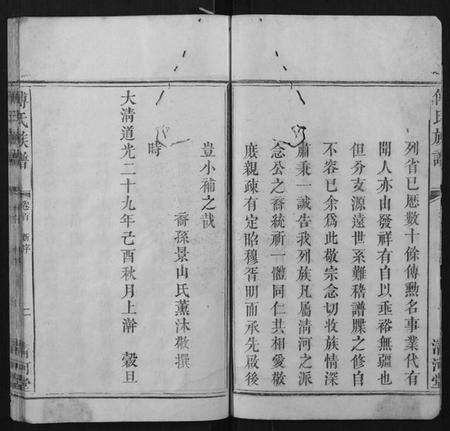 列省已歷數十餘傳勲名事業代有
聞人亦山發祥有自以垂裕無疆也
但分支源遠世系難稽譜牒之修自
不容已余爲此敬宗念切收族情深
肅秉一誠告我列族凡屬清河之派
念公之裔統祈一體同仁其相愛敬
庻親疎有定昭穆胥明而承先啟後
豈小補之哉
裔孫景山氏薰沐敬撰
時
大清道光二十九年己酉秋月上澣 榖旦
傅氏族譜
卷首
二
清河堂
傅氏族譜
清河堂